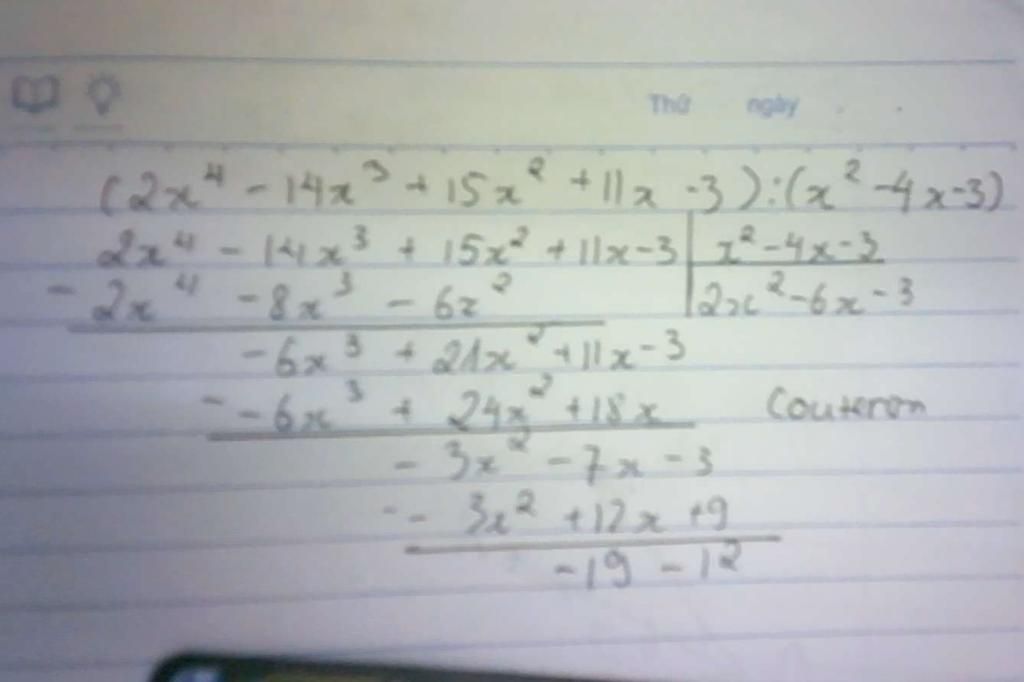 Thứ ngày
(2x⁴ - 14x³ + 15x² + 11x - 3) : (x² - 4x - 3)
2x⁴ - 14x³ + 15x² + 11x - 3 | x² - 4x - 3
- 2x⁴ - 8x³ - 6x² | 2x² - 6x - 3
- 6x³ + 21x² + 11x - 3
- - 6x³ + 24x² + 18x Couteron
- 3x² - 7x - 3
- - 3x² + 12x + 9
- 19 - 12